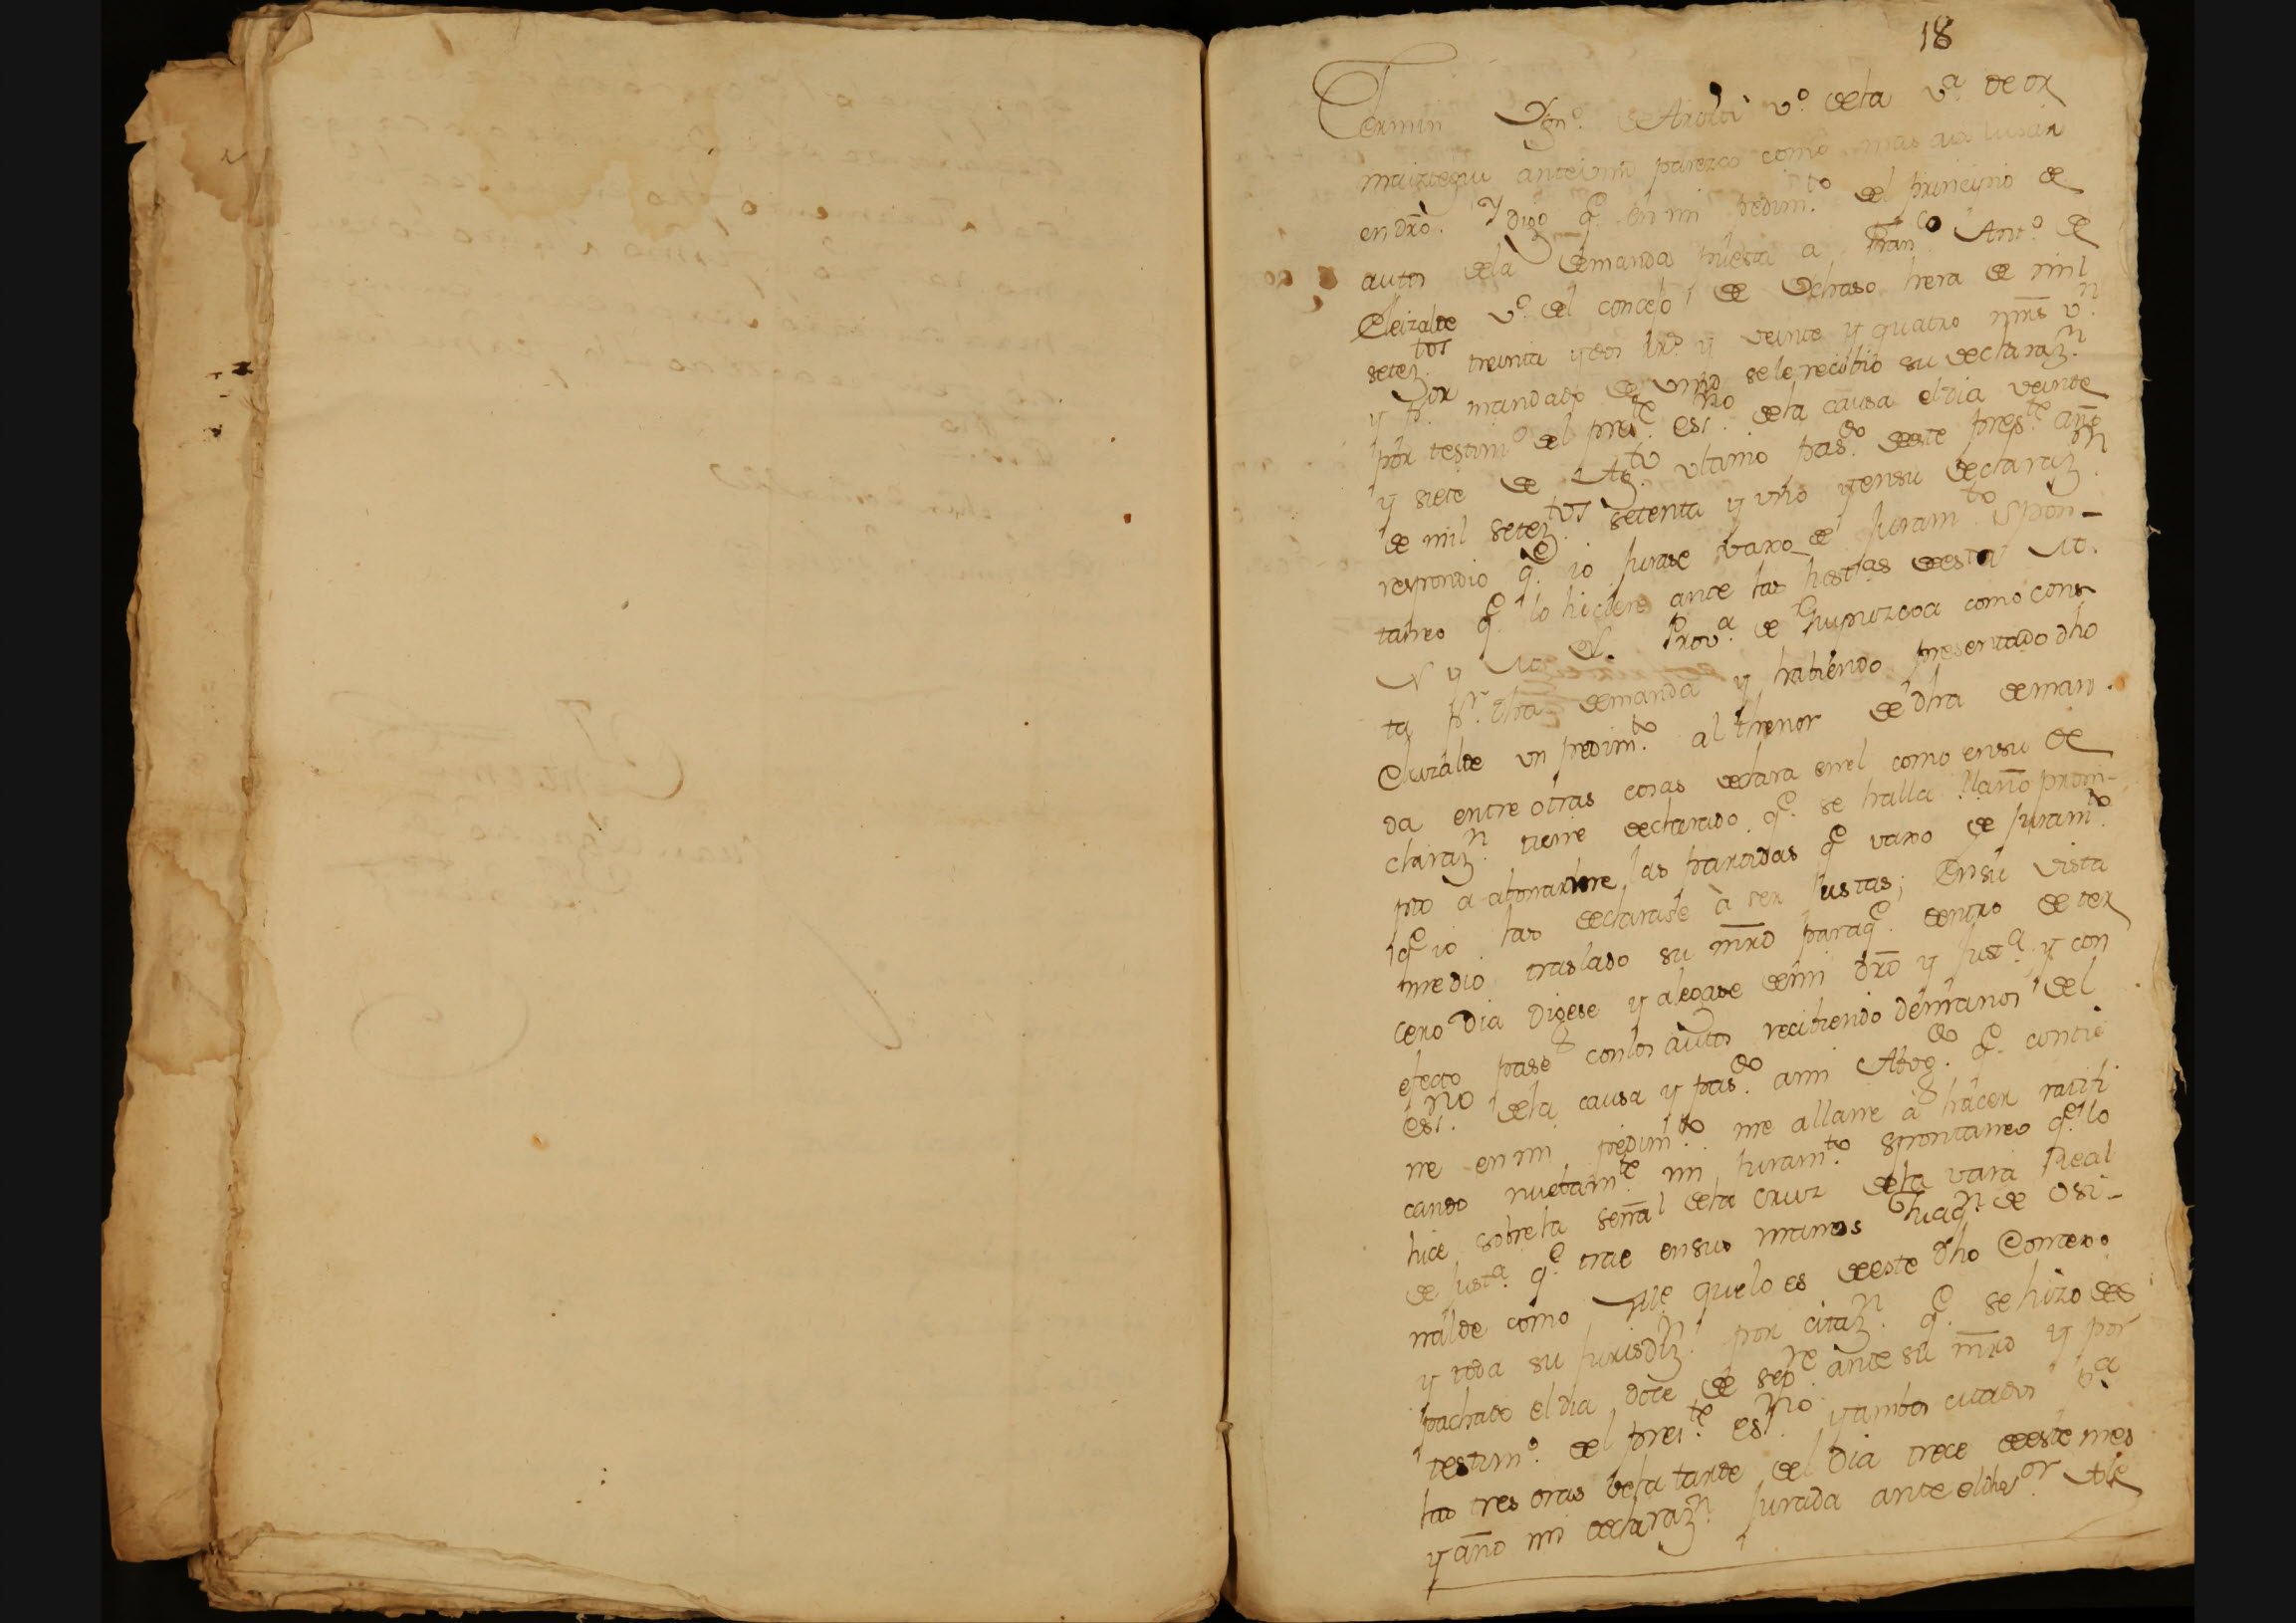 18
Fermin Ygn.o de Arolot v.o dela v.a de or
maiztegui ante vmd parezco como mas aia lugar
en dro. Y digo q.e en mi pedim.to del principio de
autos dela demanda puesta a Fran.co Ant.o de
Eleizalde v.o del concejo de Ochaso hera de mil
setez.tos treinta y dos Rs. y veinte y quatro mrs v.n
y p.r mandado de vmd se le recibio su declaraz.n
por testim.o del pres.te esc.no dela causa el dia veinte
y siete de Ag.to ultimo pas.do deeste pres.te año
de mil setez.tos setenta y uno y ensu declaraz.n
respondio q.e io jurase vaxo de juram.to spon-
taneo q.e lo hiciere ante las justias deesta M.
N y M. L. Prov.a de Guipuzcoa como cons
ta p.r dha demanda y habiendo presentado dho
Eleizalde un pedim.to al thenor de dha deman.
da entre otras cosas declara enel como ensu de
claraz.n tiene declarado q.e se halla llano prom-
pto a abonarme las partidas q.e vaxo de juram.to
q.e io las declarase à ser justas; Ensu vista
medio traslado su mrd paraq.e dentro de ter
cero dia digese y alegase demi dro y just.a y con
efecto pase con los autos recibiendo demanos del
esc.no dela causa y pas.do ami Abog.do q.e contie
ne en mi pedim.to me allane à hacer ratifi
cando nuebam.te mi juram.to spontaneo q.e lo
hice sobre la señal dela cruz dela vara Real
de just.a q.e trae ensus manos Juaq.n de Osi-
nalde como Ale quelo es deeste dho Concejo
y toda su jurisdiz.n por citaz.n q.e se hizo des
pachado el dia doce de sep.re ante su mrd y por
testim.o del pres.te es.no y ambos citados p.a
las tres oras dela tarde del dia trece deeste mes
y año mi declaraz.n jurada ante el dho s.or Ale